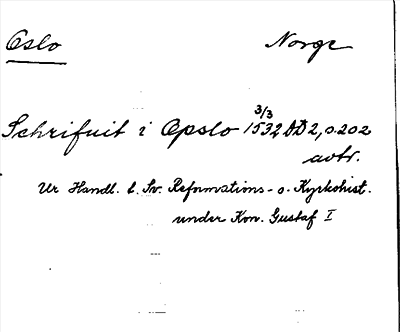 Oslo Norge
3/3
Schrifuit i Opslo 1532 DD2, o.202
avtr.
Ur Handl. t. Sv. Reformations- o. Kyrkohist.
under Kon. Gustaf I